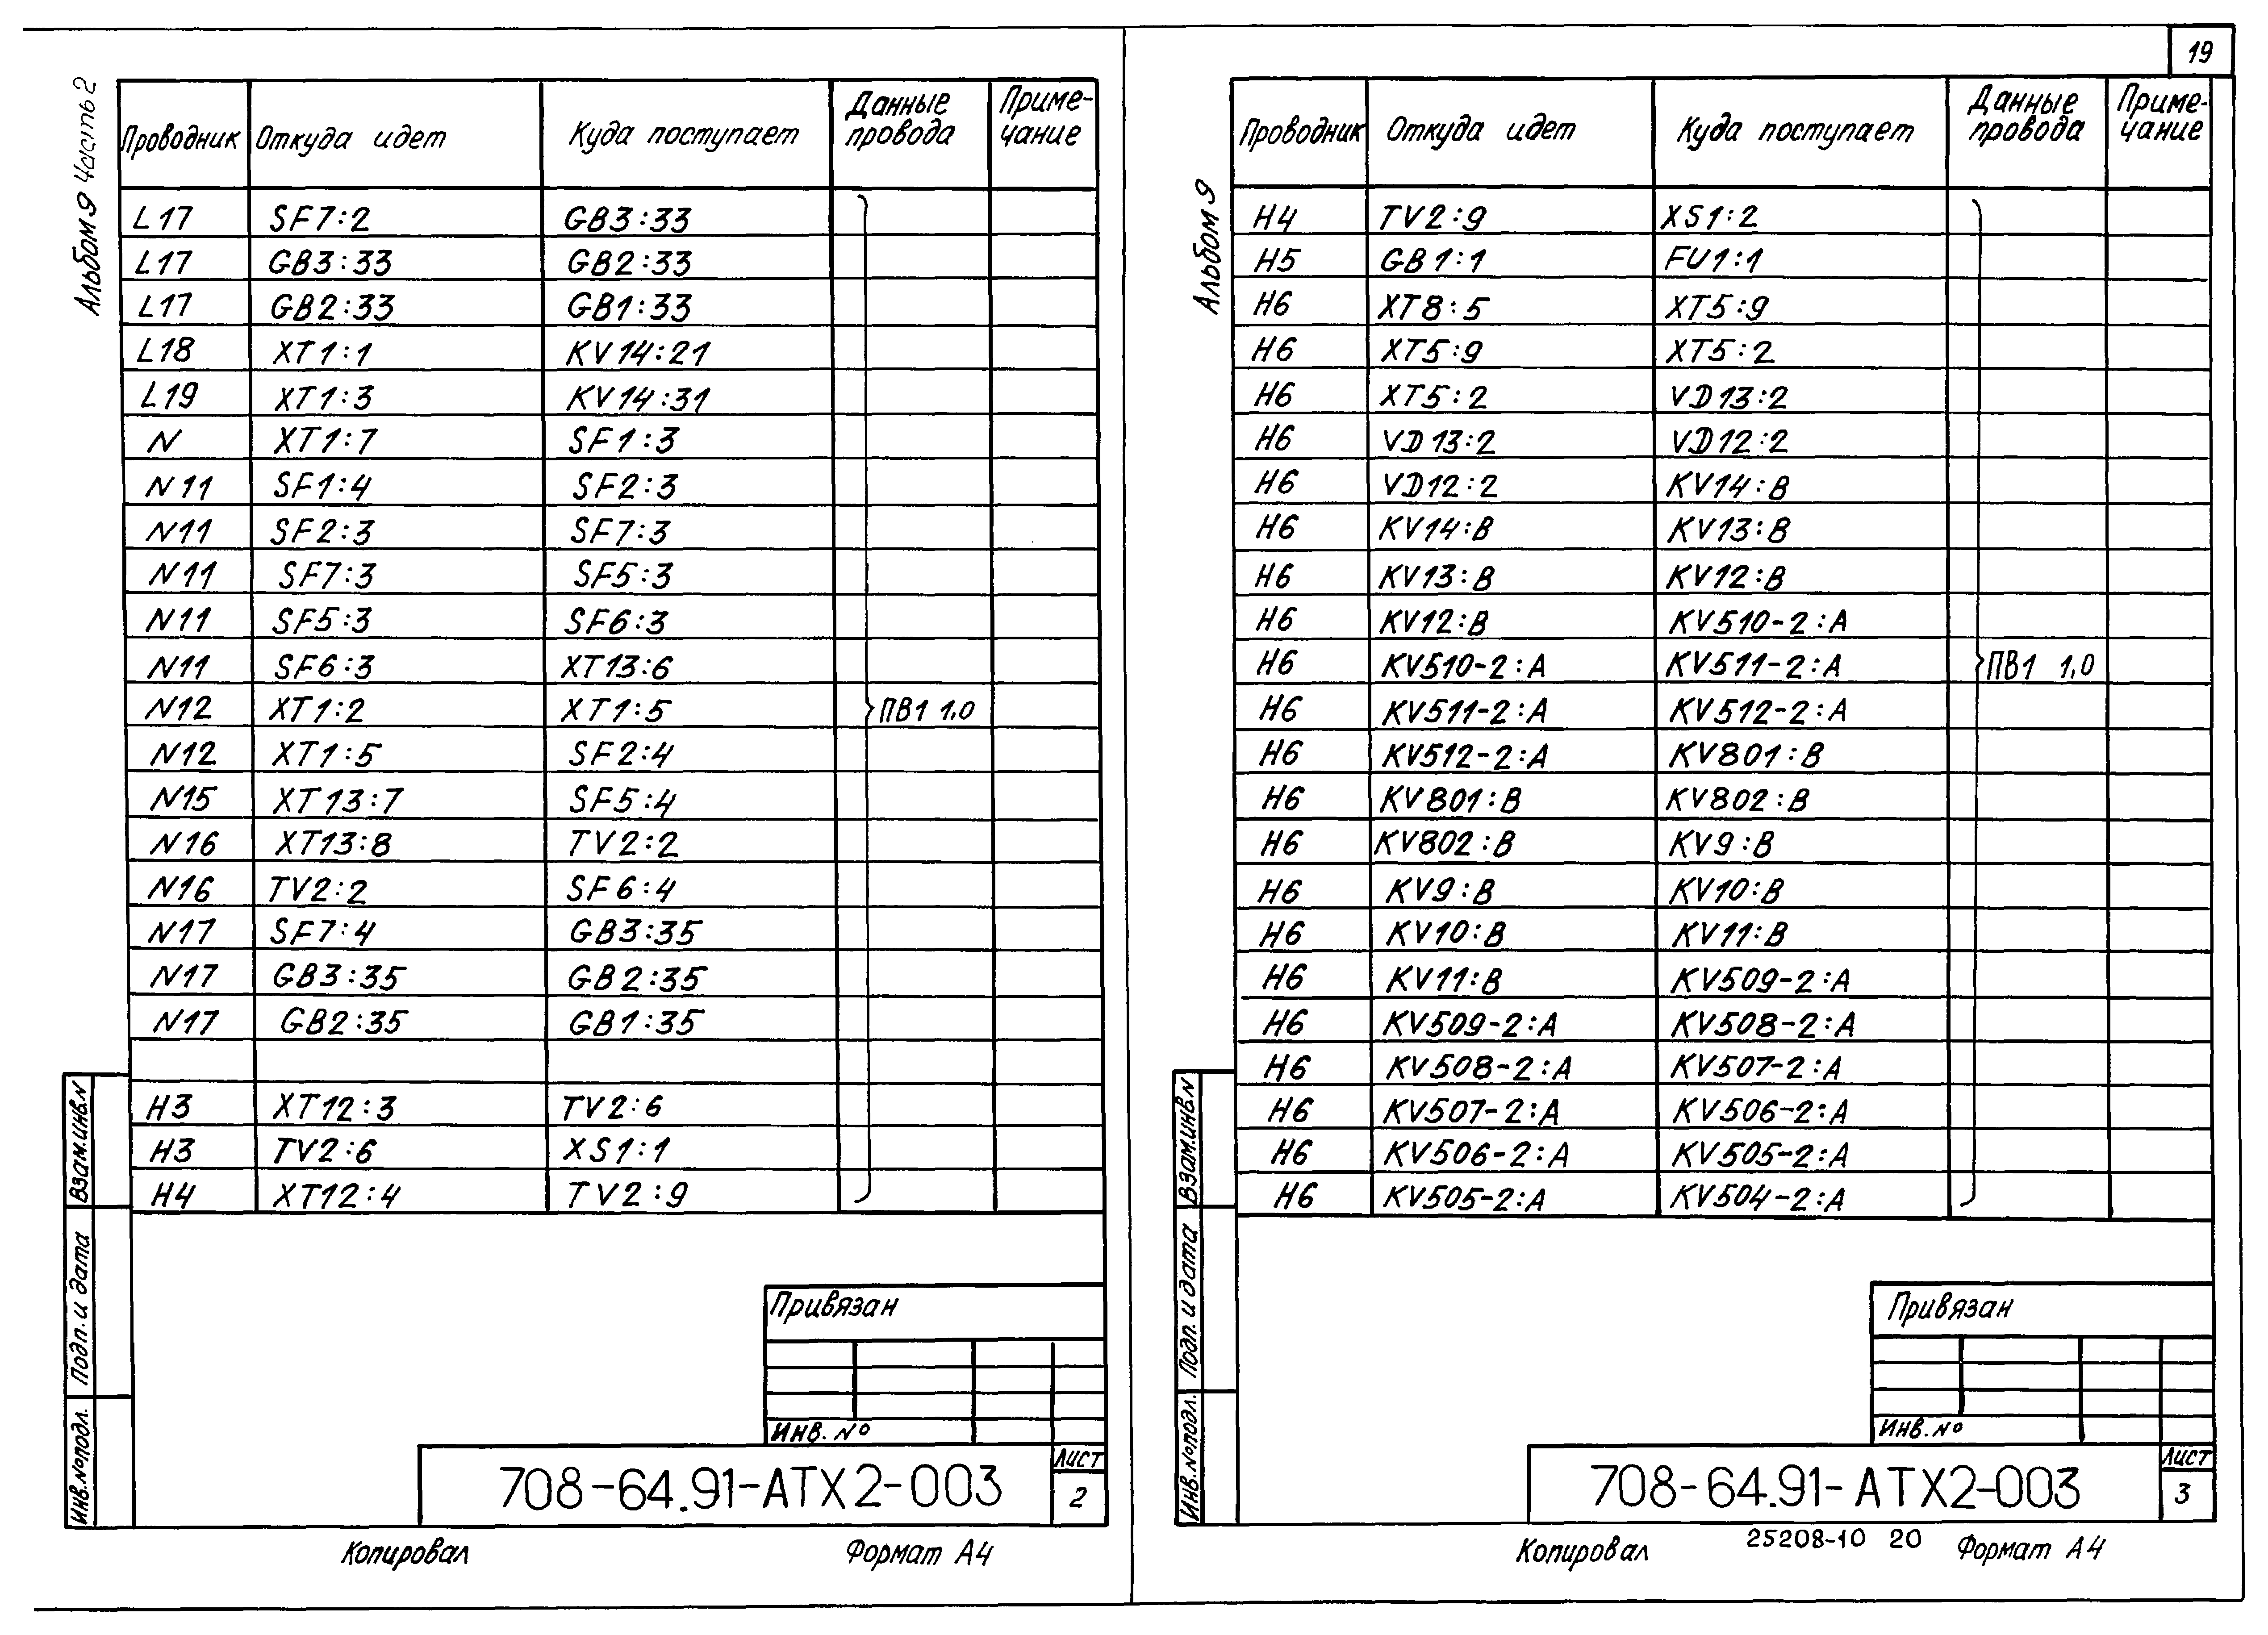 19
Альбом 9 Часть 2
Проводник Откуда идет Куда поступает Данные провода Приме-чание
L17 SF7:2 GB3:33
L17 GB3:33 GB2:33
L17 GB2:33 GB1:33
L18 XT1:1 KV14:21
L19 XT1:3 KV14:31
N XT1:7 SF1:3
N11 SF1:4 SF2:3
N11 SF2:3 SF7:3
N11 SF7:3 SF5:3
N11 SF5:3 SF6:3
N11 SF6:3 XT13:6
N12 XT1:2 XT1:5 ПВ1 1,0
N12 XT1:5 SF2:4
N15 XT13:7 SF5:4
N16 XT13:8 TV2:2
N16 TV2:2 SF6:4
N17 SF7:4 GB3:35
N17 GB3:35 GB2:35
N17 GB2:35 GB1:35
H3 XT12:3 TV2:6
H3 TV2:6 XS1:1
H4 XT12:4 TV2:9
Взам.инв.N
Подп. и дата
Инв.№подл.
Привязан
Инв. №
708-64.91-АТХ2-003
Лист
2
Копировал Формат А4
Альбом 9
Проводник Откуда идет Куда поступает Данные провода Приме-чание
H4 TV2:9 XS1:2
H5 GB1:1 FU1:1
H6 XT8:5 XT5:9
H6 XT5:9 XT5:2
H6 XT5:2 VD13:2
H6 VD13:2 VD12:2
H6 VD12:2 KV14:B
H6 KV14:B KV13:B
H6 KV13:B KV12:B
H6 KV12:B KV510-2:A
H6 KV510-2:A KV511-2:A ПВ1 1,0
H6 KV511-2:A KV512-2:A
H6 KV512-2:A KV801:B
H6 KV801:B KV802:B
H6 KV802:B KV9:B
H6 KV9:B KV10:B
H6 KV10:B KV11:B
H6 KV11:B KV509-2:A
H6 KV509-2:A KV508-2:A
H6 KV508-2:A KV507-2:A
H6 KV507-2:A KV506-2:A
H6 KV506-2:A KV505-2:A
H6 KV505-2:A KV504-2:A
Взам.инв.N
Подп. и дата
Инв.№подл.
Привязан
Инв. №
708-64.91-АТХ2-003
Лист
3
Копировал 25208-10 20 Формат А4